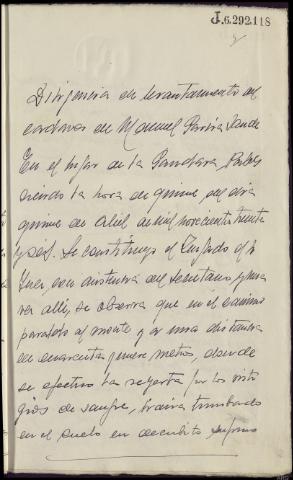 J.6.292.118
2
Diligencia de levantamiento del
cadaver de Manuel
En el lugar de la Gandara,
siendo la hora de quince, del dia
quince de Abril de mil novecientos treinta
y seis. Se constituyo el Juzgado
con asistencia del Secretario, y una
vez alli, se observa que en el camino
paralelo al monte y a una distancia
de cuarenta metros, donde
se efectuo la reyerta por los vesti
gios de sangre, habia tumbado
en el suelo en decubito supino